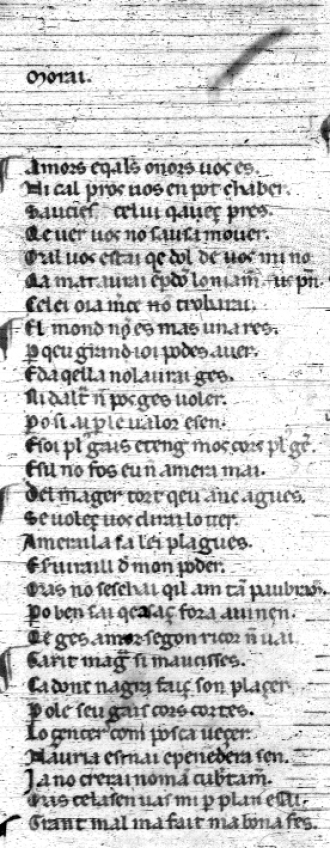 morai.
Amors eqals onors uos es.
Ni cal pros uos en pot chaber.
Sauciẽs celui qaueç pres.
Qe uer uos no sausa mouer.
Mal uos estai qe dol de uos mi no
la mat aurai
Celei ora mce nõ trobarai.
El mond nõ es mas una res.
P qeu grand ioi podes auer.
E da qella nolaurai ges.
Ni dalt n̄ posges uoler.
Po si ai p le ualor e sen.
Esoi pl gais e teng mos cors pl gẽ.
Esil no fos eu n amera mai.
Del mager tort qeu anc agues.
Se uoleç uos dirai lo uer.
Ameraila fa lei plagues.
E seruirail d mon poder.
Mas no seschai qil am tã paubram̃.
Po ben sai qe asaç fora auinen.
Qe ges amor segon ricor n̄ uai.
Garit mag si maucisses.
Cadonc nagra faiç son plaçer.
P ole seu gais cors cortes.
Lo gencer com posca ueçer.
Nauria esmai e penedera sen.
Ja no crerai noma cubtam̃.
Mas celasen uas mi p plan
Trant mal ma fait ma bona fes.